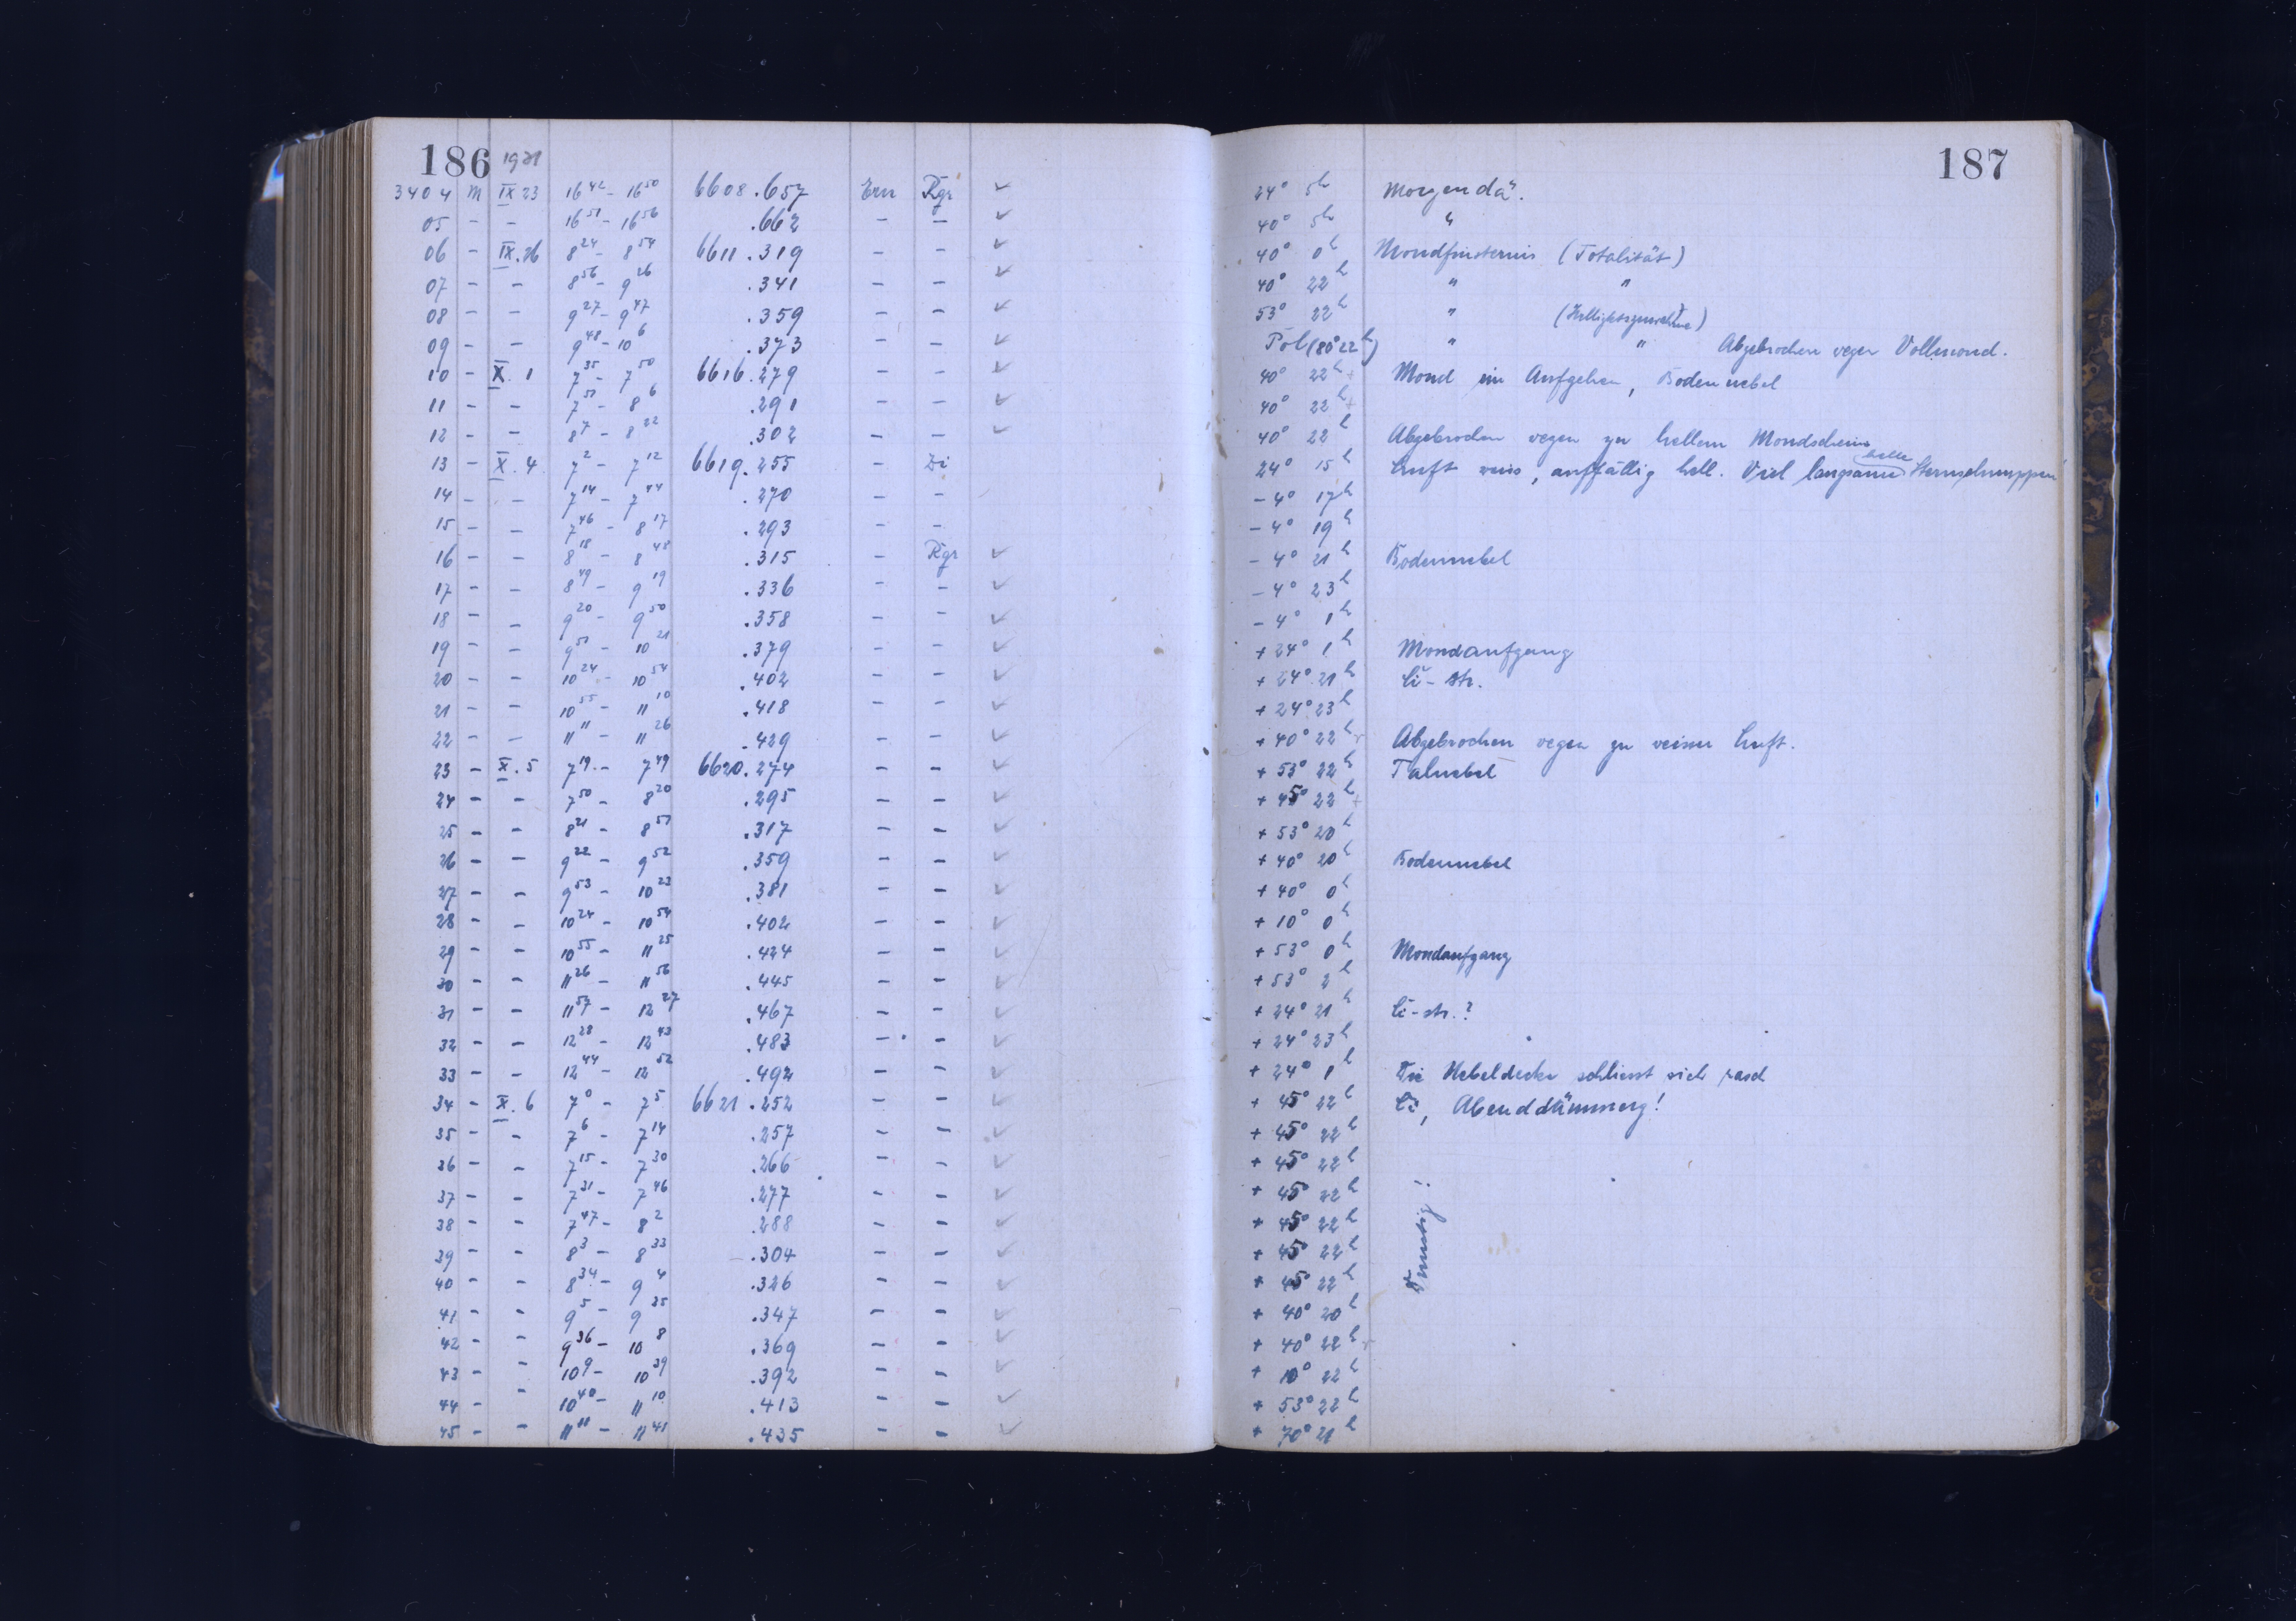 186 1931 187
3404 M IX 23 16 42 - 16 50 6608.657 Ern Rgr ✓ 24° 5h Morgendä.
05 - - 16 51 - 16 56 .662 - - ✓ 40° 5h "
06 - IX.26 8 24 - 8 54 6611.319 - - ✓ 40° 0h Mondfinsternis (Totalität)
07 - - 8 56 - 9 26 .341 - - ✓ 40° 22h " "
08 - - 9 27 - 9 47 .359 - - ✓ 53° 22h " (Helligkeitszunahme)
09 - - 9 48 - 10 6 .373 - - ✓ Pol (80° 22h) " " Abgebrochen wegen Vollmond.
10 - X. 1 7 35 - 7 50 6616.279 - - ✓ 40° 22h Mond im Aufgehen, Bodennebel
11 - - 7 51 - 8 6 .291 - - ✓ 40° 22h
12 - - 8 7 - 8 22 .302 - - ✓ 40° 22h Abgebrochen wegen zu hellem Mondschein
13 - X. 4 7 2 - 7 12 6619.255 - Di 24° 15h Luft weiss, auffällig hell. Viel langsame helle Sternschnuppen
14 - - 7 14 - 7 44 .270 - - - 4° 17h
15 - - 7 46 - 8 17 .293 - - - 4° 19h
16 - - 8 18 - 8 48 .315 - Rgr ✓ - 4° 21h Bodennebel
17 - - 8 49 - 9 19 .336 - - ✓ - 4° 23h
18 - - 9 20 - 9 50 .358 - - ✓ - 4° 1h
19 - - 9 51 - 10 21 .379 - - ✓ + 24° 1h Mondaufgang
20 - - 10 24 - 10 54 .402 - - ✓ + 24° 21h Ci-str.
21 - - 10 55 - 11 10 .418 - - ✓ + 24° 23h
22 - - 11 11 - 11 26 .429 - - ✓ + 40° 22h Abgebrochen wegen zu weisser Luft.
23 - X. 5 7 19 - 7 49 6620.274 - - ✓ + 53° 22h Talnebel
24 - - 7 50 - 8 20 .295 - - ✓ + 45° 22h
25 - - 8 21 - 8 51 .317 - - ✓ + 53° 20h
26 - - 9 22 - 9 52 .359 - - ✓ + 40° 20h Bodennebel
27 - - 9 53 - 10 23 .381 - - ✓ + 40° 0h
28 - - 10 24 - 10 54 .402 - - ✓ + 10° 0h
29 - - 10 55 - 11 25 .424 - - ✓ + 53° 0h Mondaufgang
30 - - 11 26 - 11 56 .445 - - ✓ + 53° 2h
31 - - 11 57 - 12 27 .467 - - ✓ + 24° 21h Ci-str.?
32 - - 12 28 - 12 43 .483 - - ✓ + 24° 23h
33 - - 12 44 - 12 52 .492 - - ✓ + 24° 1h Die Nebeldecke schliesst sich rasch
34 - X. 6 7 0 - 7 5 6621.252 - - ✓ + 45° 22h Ci, Abenddämmerg!
35 - - 7 6 - 7 14 .257 - - ✓ + 45° 22h
36 - - 7 15 - 7 30 .266 - - ✓ + 45° 22h
37 - - 7 31 - 7 46 .277 - - ✓ + 45° 22h
38 - - 7 47 - 8 2 .288 - - ✓ + 45° 22h
39 - - 8 3 - 8 33 .304 - - ✓ + 45° 22h
40 - - 8 34 - 9 4 .326 - - ✓ + 45° 22h
41 - - 9 5 - 9 35 .347 - - ✓ + 40° 20h
42 - - 9 36 - 10 8 .369 - - ✓ + 40° 22h
43 - - 10 9 - 10 39 .392 - - ✓ + 10° 22h
44 - - 10 40 - 11 10 .413 - - ✓ + 53° 22h
45 - - 11 11 - 11 41 .435 - - ✓ + 70° 21h
Dunstig!